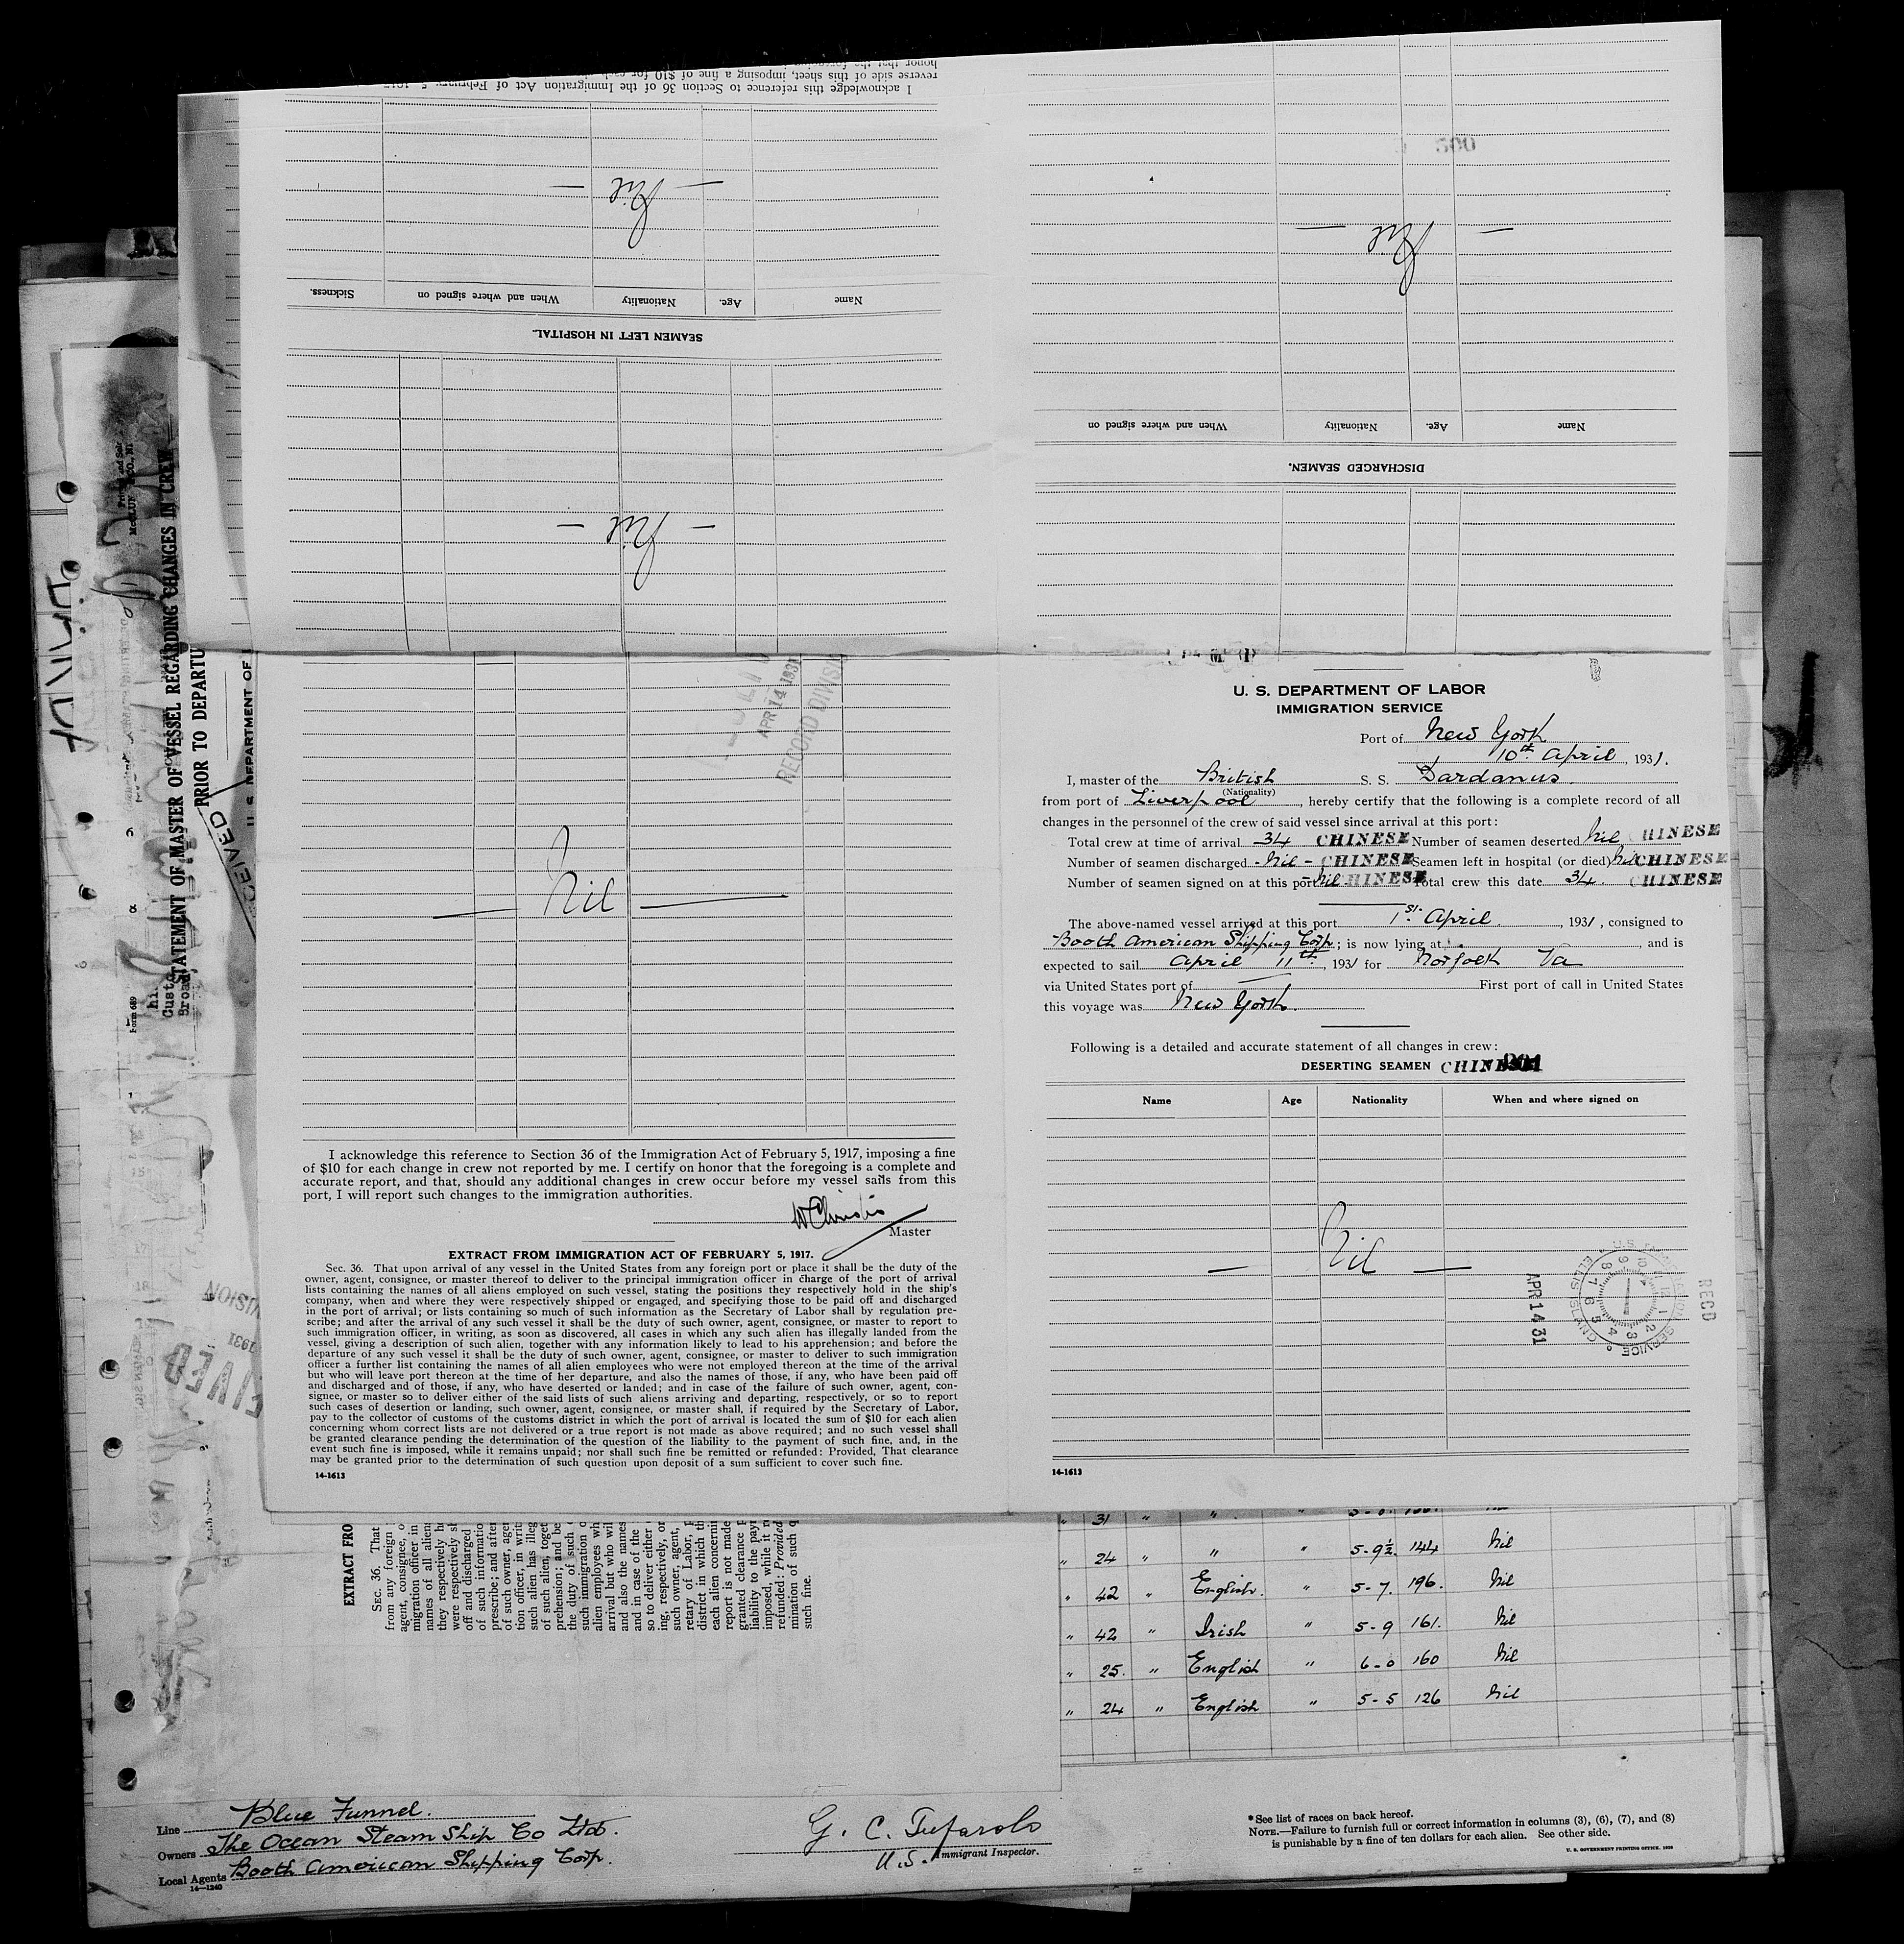 I acknowledge this reference to Section 36 of the Immigration Act of February 5, 1917
reverse side of this sheet, imposing a fine of $10 for
honor that the foregoing
— Nil —
Sickness.
When and where signed on
Nationality
Age.
Name
SEAMEN LEFT IN HOSPITAL.
— Nil —
500
— Nil —
When and where signed on
Nationality
Age.
Name
DISCHARGED SEAMEN.
STATEMENT OF MASTER OF VESSEL REGARDING CHANGES IN CREW
PRIOR TO DEPARTU
U. S. DEPARTMENT OF
Form 689
APR 14 1931
RECORD DIVISI
— Nil —
I acknowledge this reference to Section 36 of the Immigration Act of February 5, 1917, imposing a fine
of $10 for each change in crew not reported by me. I certify on honor that the foregoing is a complete and
accurate report, and that, should any additional changes in crew occur before my vessel sails from this
port, I will report such changes to the immigration authorities.
Master
EXTRACT FROM IMMIGRATION ACT OF FEBRUARY 5, 1917.
Sec. 36. That upon arrival of any vessel in the United States from any foreign port or place it shall be the duty of the
owner, agent, consignee, or master thereof to deliver to the principal immigration officer in charge of the port of arrival
lists containing the names of all aliens employed on such vessel, stating the positions they respectively hold in the ship's
company, when and where they were respectively shipped or engaged, and specifying those to be paid off and discharged
in the port of arrival; or lists containing so much of such information as the Secretary of Labor shall by regulation pre-
scribe; and after the arrival of any such vessel it shall be the duty of such owner, agent, consignee, or master to report to
such immigration officer, in writing, as soon as discovered, all cases in which any such alien has illegally landed from the
vessel, giving a description of such alien, together with any information likely to lead to his apprehension; and before the
departure of any such vessel it shall be the duty of such owner, agent, consignee, or master to deliver to such immigration
officer a further list containing the names of all alien employees who were not employed thereon at the time of the arrival
but who will leave port thereon at the time of her departure, and also the names of those, if any, who have been paid off
and discharged and of those, if any, who have deserted or landed; and in case of the failure of such owner, agent, con-
signee, or master so to deliver either of the said lists of such aliens arriving and departing, respectively, or so to report
such cases of desertion or landing, such owner, agent, consignee, or master shall, if required by the Secretary of Labor,
pay to the collector of customs of the customs district in which the port of arrival is located the sum of $10 for each alien
concerning whom correct lists are not delivered or a true report is not made as above required; and no such vessel shall
be granted clearance pending the determination of the question of the liability to the payment of such fine, and, in the
event such fine is imposed, while it remains unpaid; nor shall such fine be remitted or refunded: Provided, That clearance
may be granted prior to the determination of such question upon deposit of a sum sufficient to cover such fine.
14-1613
U. S. DEPARTMENT OF LABOR
IMMIGRATION SERVICE
Port of New York
10th April, 1931.
I, master of the British S. S. Dardanus.
(Nationality)
from port of Liverpool, hereby certify that the following is a complete record of all
changes in the personnel of the crew of said vessel since arrival at this port:
Total crew at time of arrival 34 CHINESE Number of seamen deserted Nil CHINESE
Number of seamen discharged - Nil - CHINESE Seamen left in hospital (or died) Nil CHINESE
Number of seamen signed on at this port - Nil CHINESE Total crew this date 34. CHINESE
The above-named vessel arrived at this port 1st. April, 1931, consigned to
Booth American Shipping Corp.; is now lying at, and is
expected to sail April 11th, 1931 for Norfolk Va
via United States port of — First port of call in United States
this voyage was New York.
Following is a detailed and accurate statement of all changes in crew:
DESERTING SEAMEN CHINESE
Name Age Nationality When and where signed on
— Nil —
APR 14 31
RECD
ELLIS ISLAND
14-1613
EXTRACT FRO
Sec. 36. That
from any foreign
agent, consignee, o
migration officer in
names of all alien
they respectively h
were respectively s
off and discharged
of such informatio
prescribe; and after
of such owner, age
tion officer, in writi
such alien has illeg
of such alien, toget
prehension; and be
the duty of such
such immigration o
alien employees wh
arrival but who wil
and also the names
and in case of the
so to deliver either
ing, respectively, or
such owner, agent,
retary of Labor, p
district in which th
each alien concerni
report is not made
granted clearance p
liability to the payr
imposed, while it r
refunded: Provided
mination of such q
such fine.
" 31 " " "
" 24 " " " 5-9½ 144 Nil
" 42 " English. " 5-7. 196. Nil
" 42 " Irish " 5-9 161. Nil
" 25. " English " 6-0 160 Nil
" 24 " English " 5-5 126 Nil
Line Blue Funnel.
Owners The Ocean Steam Ship Co Ltd.
Local Agents Booth American Shipping Corp.
14-1240
G. C. Tufarolo
U.S. Immigrant Inspector.
*See list of races on back hereof.
NOTE.—Failure to furnish full or correct information in columns (3), (6), (7), and (8)
is punishable by a fine of ten dollars for each alien. See other side.
U. S. GOVERNMENT PRINTING OFFICE